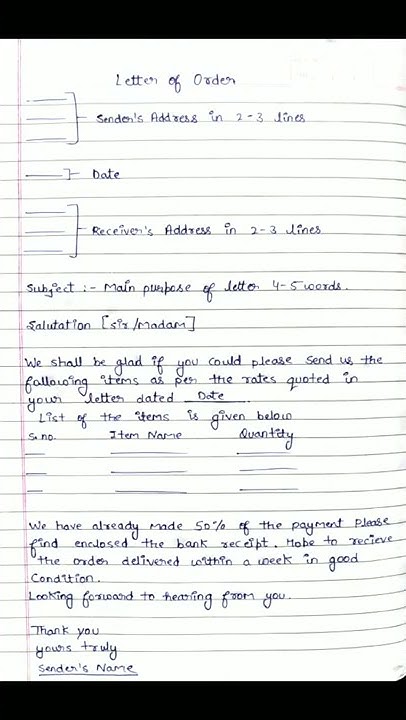 Letter of Order
Sender's Address in 2-3 lines
Date
Receiver's Address in 2-3 lines
Subject :- Main purpose of letter 4-5 words.
Salutation [Sir/Madam]
We shall be glad if you could please send us the
following items as per the rates quoted in
your letter dated Date
List of the items is given below
S.no. Item Name Quantity
We have already made 50% of the payment please
find enclosed the bank receipt. Hope to recieve
the order delivered within a week in good
Condition.
Looking forward to hearing from you.
Thank you
yours truly
Sender's Name